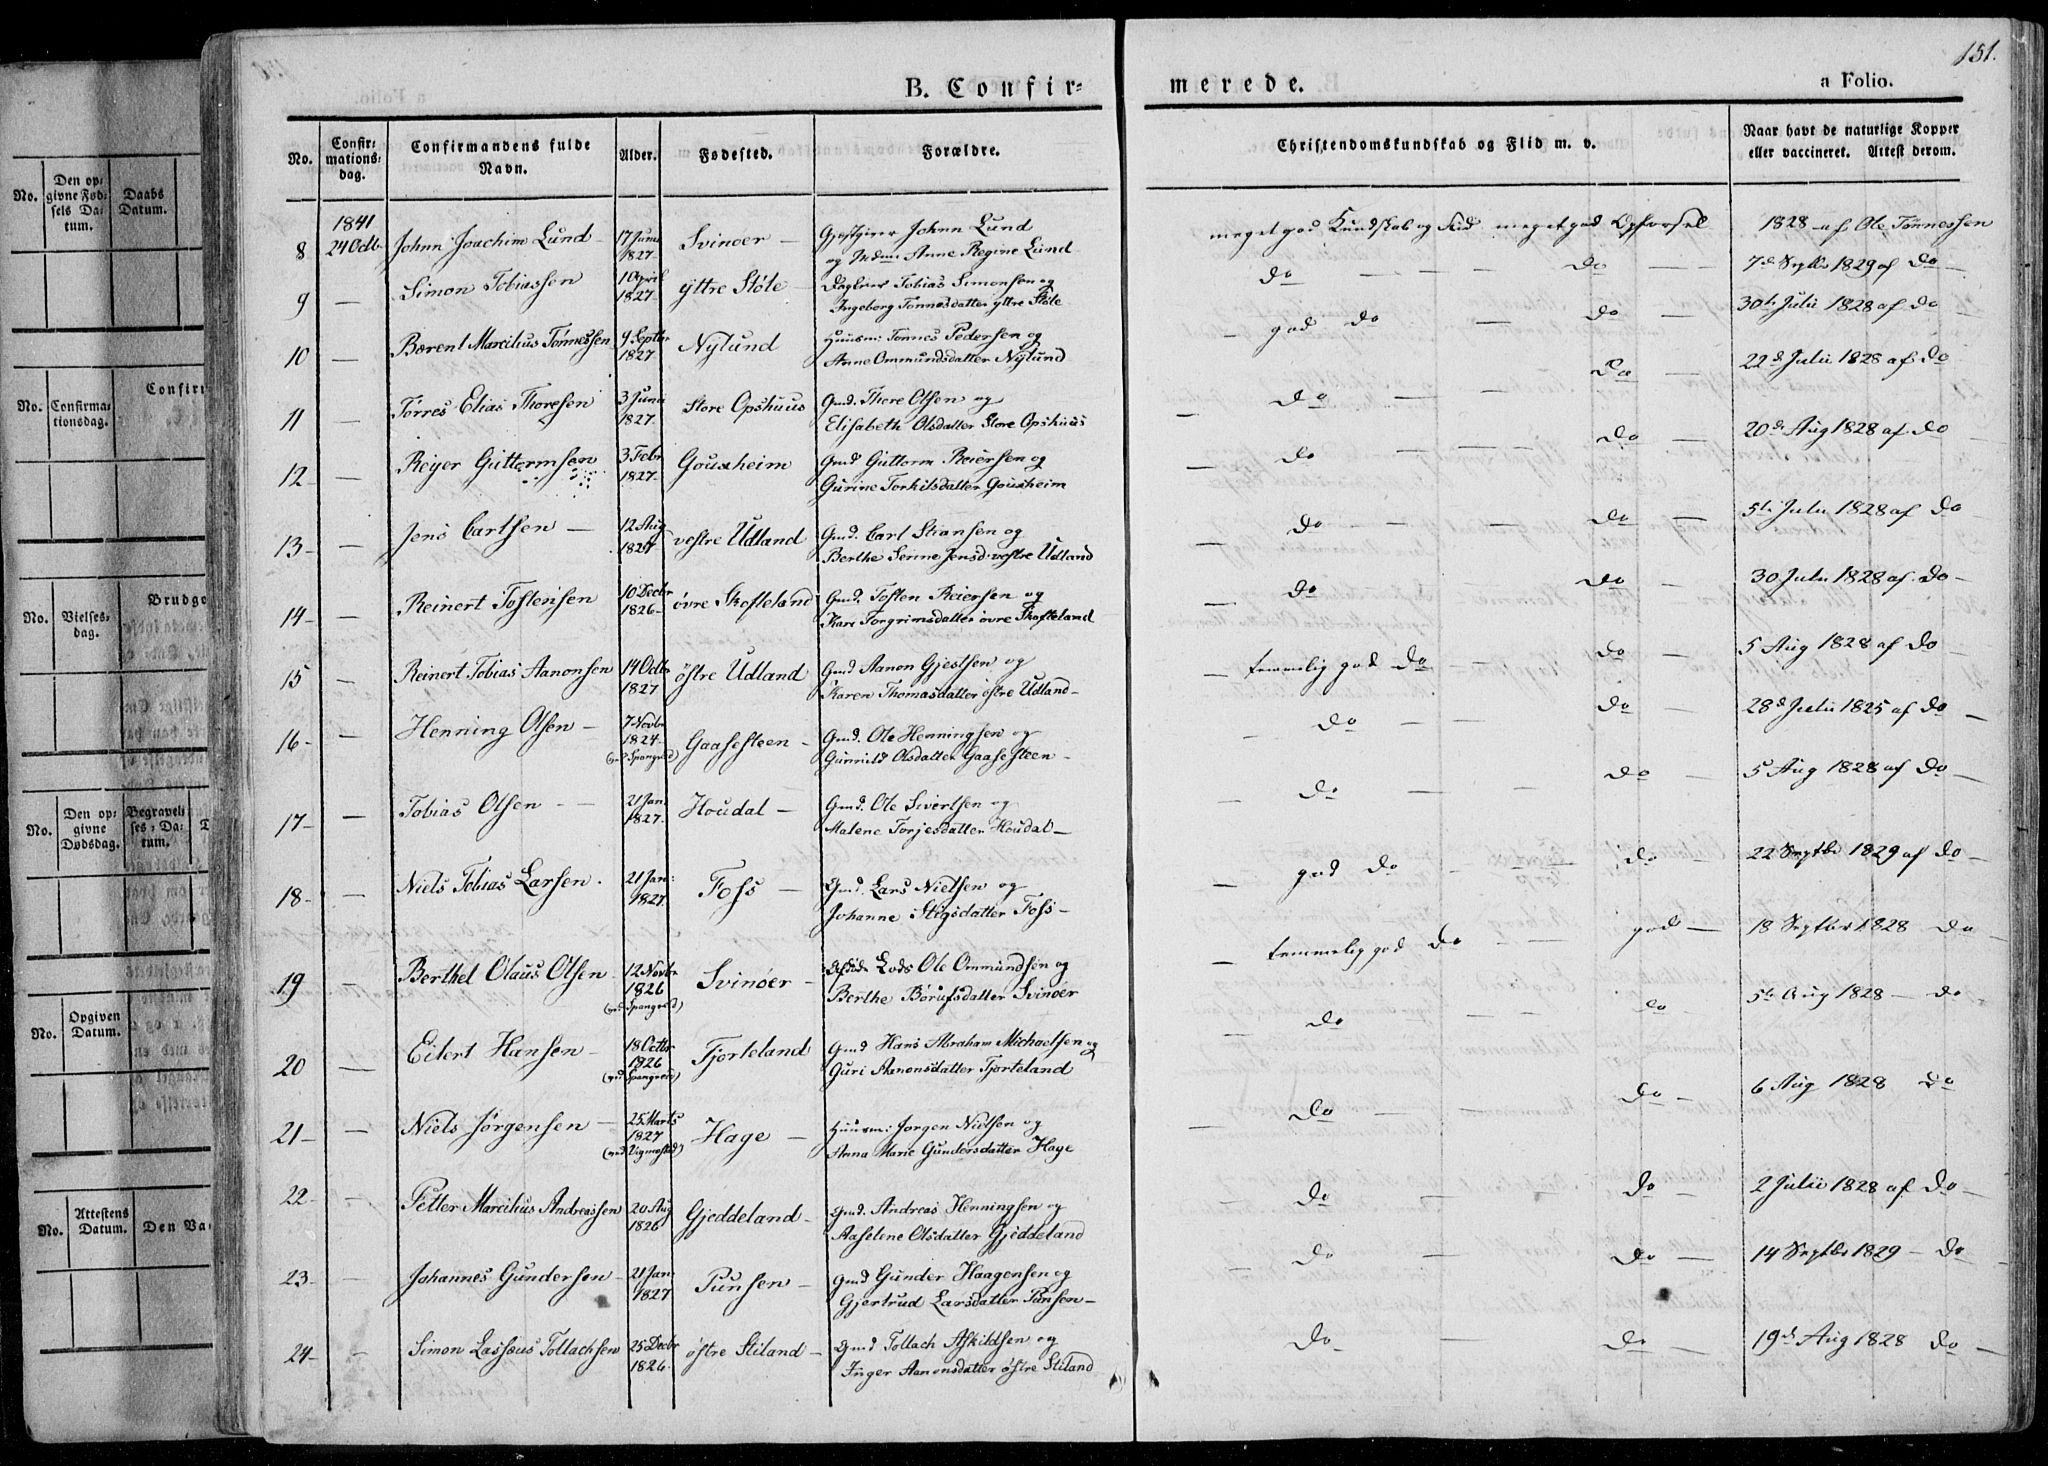 151.
B. Confir-
merede.
a Folio.
No.
Confir-
mations-
dag.
Confirmandens fulde
Navn.
Alder.
Fødested.
Forældre.
Christendomskundskab og Flid m. v.
Naar havt de naturlige Kopper
eller vaccineret. Attest derom.
1841
8 24 Octb. Johnn Joachim Lund 17 Juni 1827 Svinøer Gjestgiver Johnn Lund
og Mdm: Anne Regine Lund
meget god Kundskab og Flid meget god Opførsel 1828 af Ole Tønnessen
9 — Simon Tobiassen 1 April 1827 yttre Støle Tobias Simonsen og
Ingeborg Tønnesdatter yttre Støle
do — do — 7d Septbr 1829 af do
10 — Bærent Marcilius Tønnessen 9 Septbr 1827 Nylund Huusm: Tønnes Pedersen og
Anne Ommundsdatter Nylund
god do — do — 30te Julii 1828 af do
11 — Tørres Elias Thoresen 3 Juni 1827 Store Opshuus Gmd. Thore Olsen og
Elisabeth Olsdatter Store Opshuus
do — do — 22d Julii 1828 af do
12 — Reyer Guttormsen 3 Febr 1827 Gousheim Gmd Guttorm Reiersen og
Gurine Torkilsdatter Gousheim
do — do — 20d Aug 1828 af do
13 — Jens Carlsen 12 Aug 1827 vestre Udland Gmd. Carl Stiansen og
Berthe Serine Jensd: vestre Udland
do — do — 5te Julii 1828 af do
14 — Reinert Tostensen 10 Decbr 1826 øvre Skofteland Gmd. Tosten Reiersen og
Kari Torgrimsdatter øvre Skofteland
do — do — 30 Julii 1828 af do
15 — Reinert Tobias Aanonsen 14 Octbr 1827 østre Udland Gmd Aanon Gjestsen og
Karen Thomasdatter østre Udland
temmelig god do — do — 5 Aug 1828 af do
16 — Henning Olsen 7 Novbr 1824 (ved Spangreid) Gaasesteen Gmd. Ole Henningsen og
Gunnild Olsdatter Gaasesteen
do — do — 28d Julii 1825 af do
17 — Tobias Olsen 21 Jan 1827 Houdal Gmd. Ole Sivertsen og
Malene Torjesdatter Houdal
do — do — 5 Aug 1828 af do
18 — Niels Tobias Larsen 21 Jan: 1827 Foss Gmd. Lars Nielsen og
Johanne Stigsdatter Foss
god do — do — 22 Septbr 1829 af do
19 — Berthel Olaus Olsen 12 Novbr 1826 (ved Spangreid) Svinøer Afdøde Lods Ole Ommundsen og
Berthe Børufsdatter Svinøer
temmelig god do — god — 18 Septbr 1828 do
20 — Eilert Hansen 18 Octbr 1826 (ved Spangreid) Fjorteland Gmd Hans Abraham Michaelsen og
Guri Aanonsdatter Fjorteland
do — do 5te Aug 1828 — do
21 — Niels Jørgensen 25 Marts 1827 (ved Vigmostad) Hage Huusm: Jorgen Nielsen og
Anna Marie Gundersdatter Hage
do — do — 6 Aug 1828 do
22 — Petter Marcilius Andreassen 20 Aug 1826 Gjeddeland Gmd. Andreas Henningsen og
Aaselene Olsdatter Gjeddeland
do — do — 2 Julii 1828 af do
23 — Johannes Gundersen 21 Jan 1827 Punsen Gmd Gunder Haagensen og
Gjertrud Larsdatter Punsen
do — do — 14 Septbr 1829 — do
24 — Simon Lassæus Tollachsen 25 Decbr 1826 østre Stiland Gmd Tollach Askildsen og
Inger Aanonsdatter østre Stiland
do — do — 19d Aug 1828 do
No.
Den op-
givne Fød-
sels Da-
tum.
Daabs
Datum.
Confirm
No.
Confirma-
tionsdag.
Brudgo
No.
Vielses-
dag.
No.
Den op-
givne
Dødsdag.
Begravel-
ses-Da-
tum.
No.
Opgiven
Datum.
No.
Attestens
Datum.
Den Va